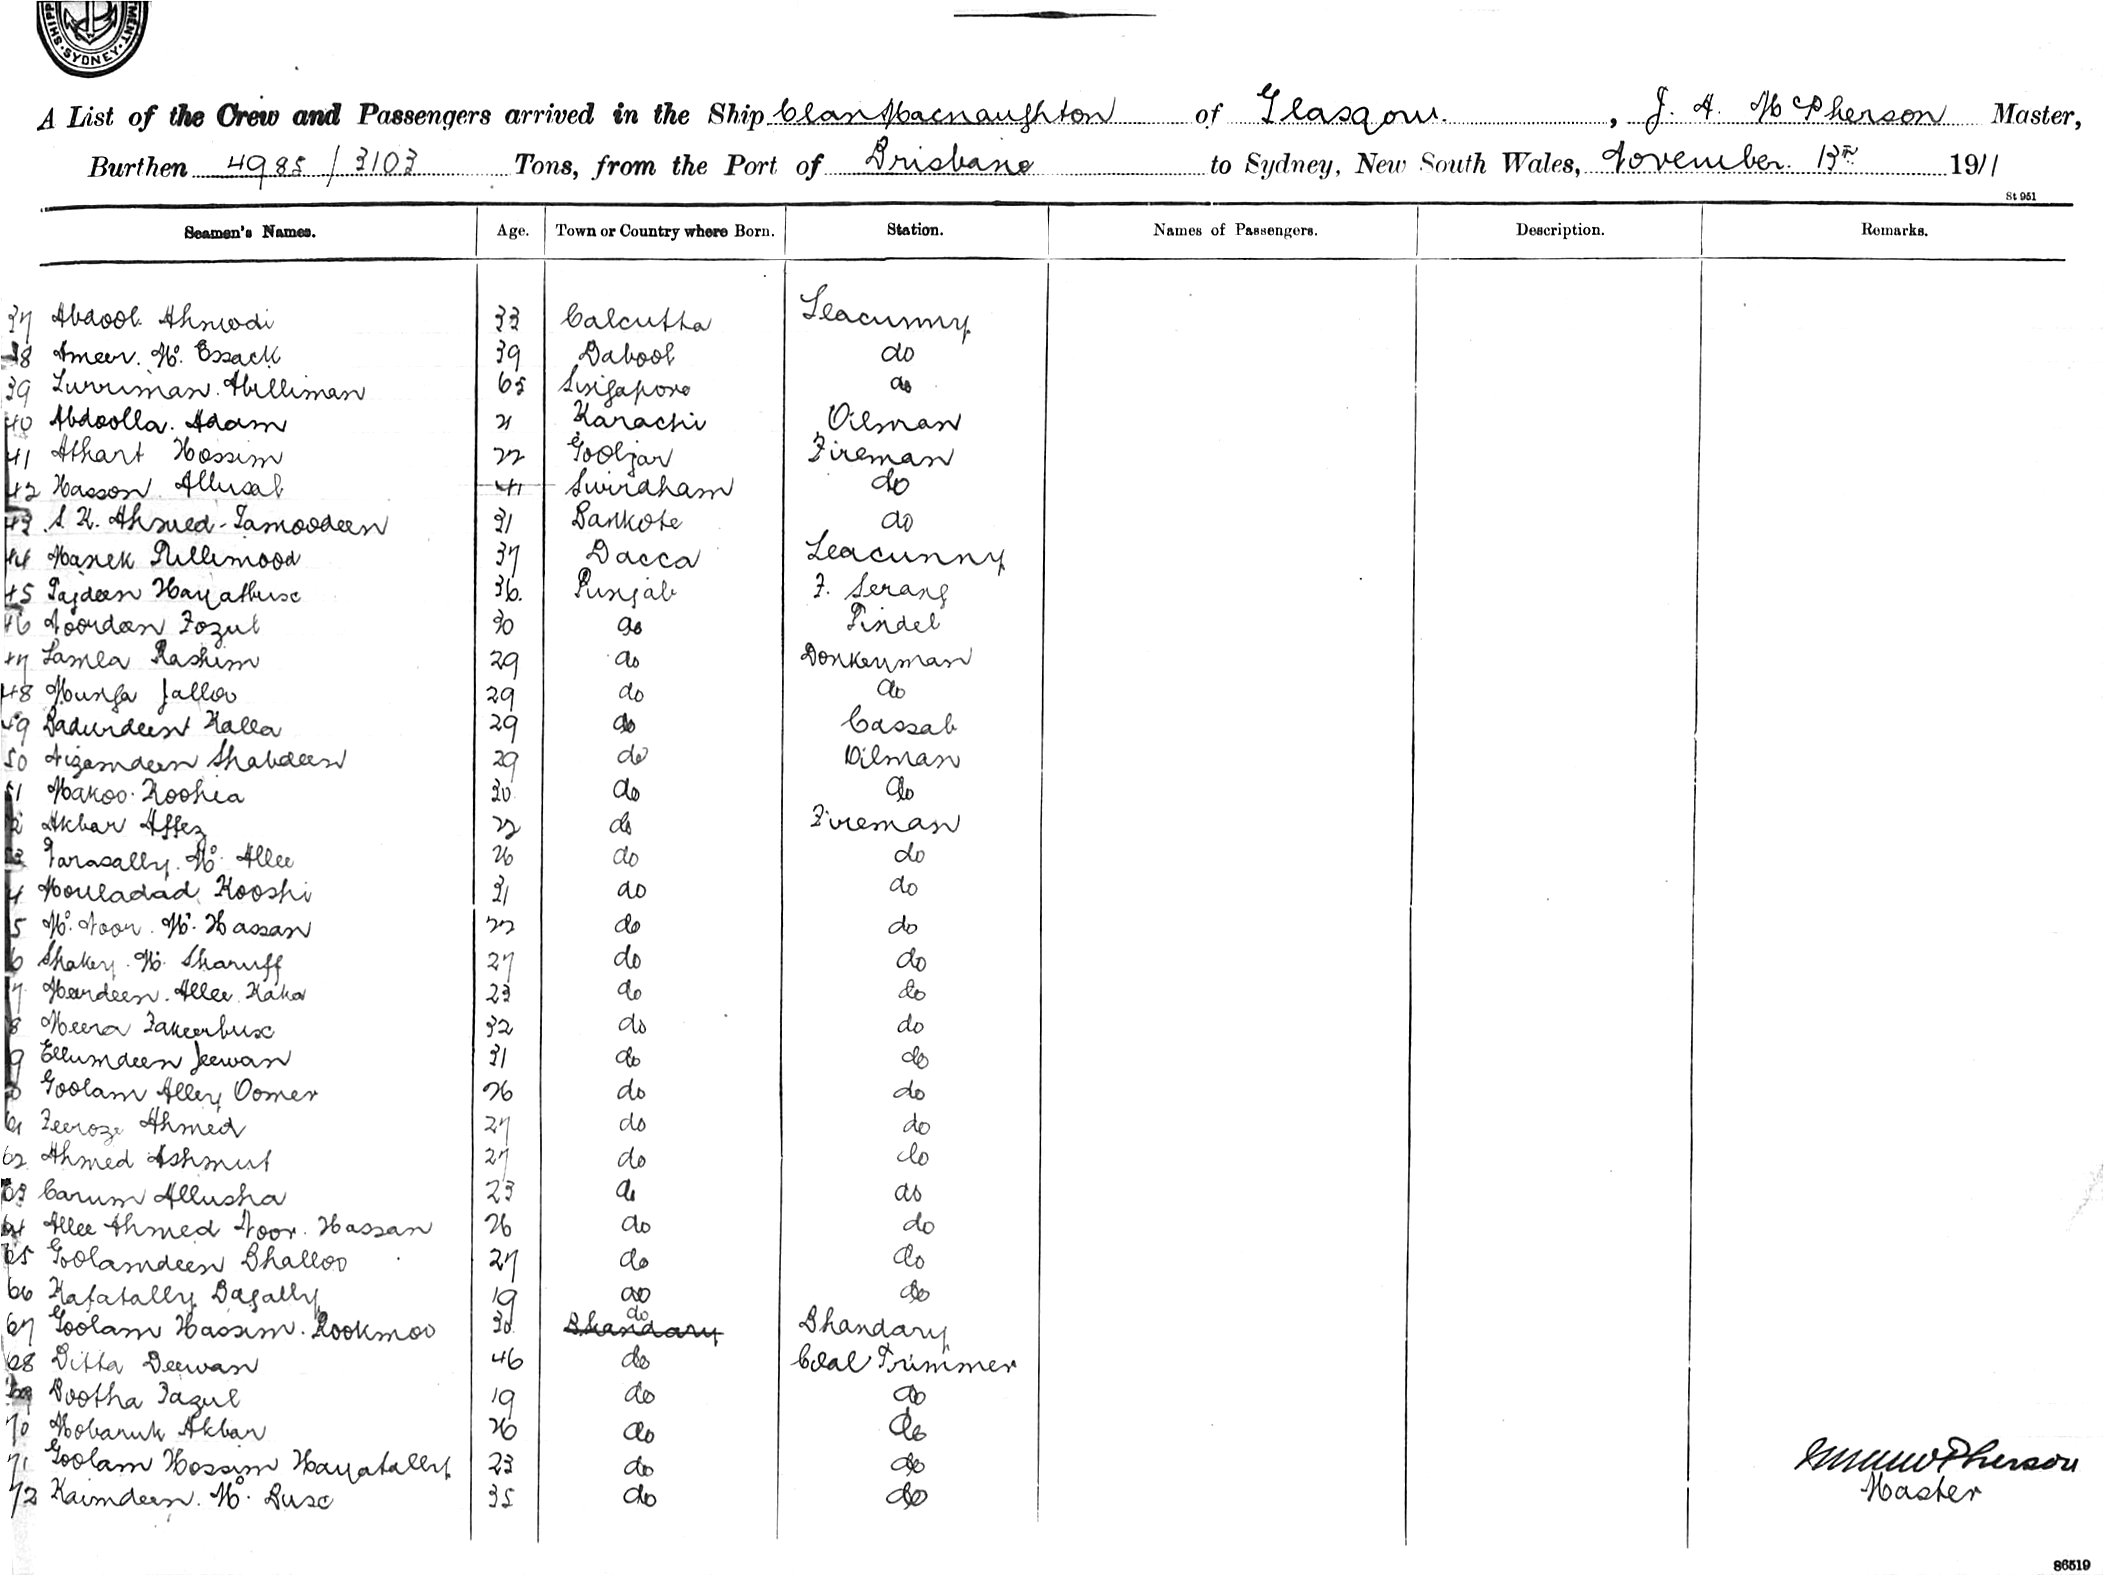 SHIPP MENT SYDNEY
A List of the Crew and Passengers arrived in the Ship Clan Macnaughton of Glasgow, J. A. McPherson Master,
Burthen 4985/3103 Tons, from the Port of Brisbane to Sydney, New South Wales, November 13th 1911
St 951
Seamen's Names. Age. Town or Country where Born. Station. Names of Passengers. Description. Remarks.
37 Abdool Ahmodi 33 Calcutta Seacunny
38 Ameer Md. Essack 39 Dabool do
39 Surriman Abilliman 65 Singapore do
40 Abdoolla Adam 21 Karachi Oilman
41 Athart Hossim 22 Gooljar Fireman
42 Hasson Allusab 41 Swirdham do
43 S. K. Ahmed Tamoodeen 31 Bankote do
44 Manek Pullimood 37 Dacca Seacunny
45 Tajdeen Hayatbusc 36. Punjab F. Serang
46 Noordeen Fozul 30 do Tindel
47 Samla Rashim 29 do Donkeyman
48 Munga Jalloo 29 do do
49 Badurdeen Kalla 29 do Cassab
50 Nizamdeen Shabdeen 29 do Oilman
51 Makoo Koohia 30 do do
2 Akbar Affez 22 do Fireman
53 Farasally Md. Allee 26 do do
4 Mouladad Kooshi 31 do do
5 Md. Noor Md. Hassan 22 do do
6 Shakey Md. Sharuff 27 do do
7 Meerdeen Allee Kaka 23 do do
8 Meera Fakeerbusc 32 do do
9 Ellumdeen Jeewan 31 do do
0 Goolam Alley Oomer 26 do do
61 Feeroze Ahmed 27 do do
62 Ahmed Ashmut 27 do do
63 Carum Allusha 23 do do
64 Allee Ahmed Noor Hassan 26 do do
65 Goolamdeen Bhalloo 27 do do
66 Kafatally Bagally 19 do do
67 Goolam Hassim Rookmoo 30 Bhandary do Bhandary
68 Ditta Deewan 46 do Coal Trimmer
69 Bootha Fazul 19 do do
70 Mobaruk Akbar 26 do do
71 Goolam Hossim Hayatally 23 do do
72 Kaimdeen Md. Busc 35 do do
McPherson
Master
86519